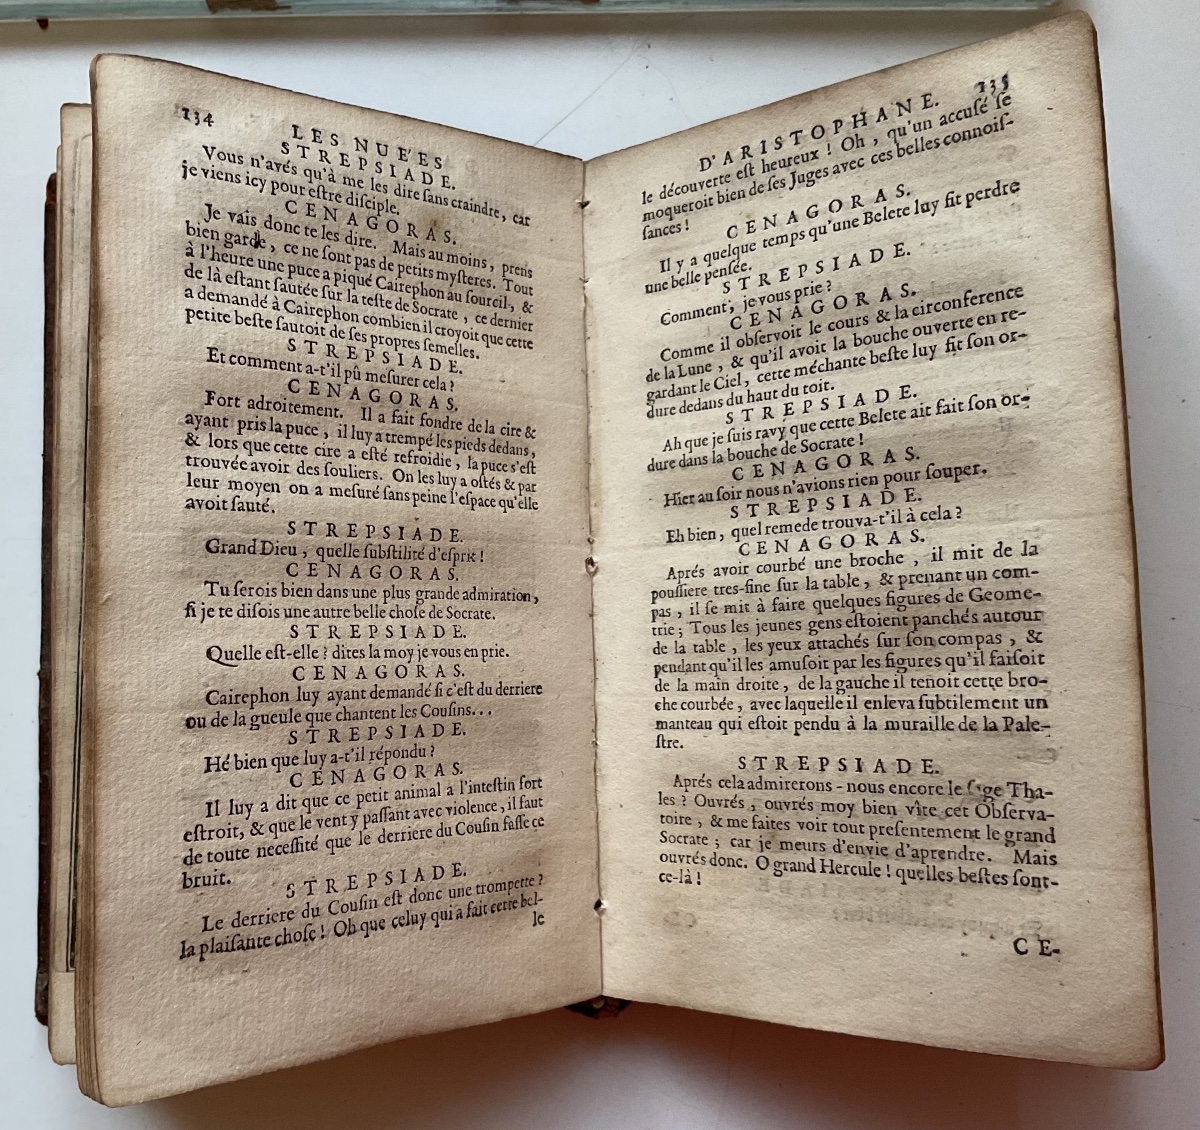 134
LES NUE'ES
STREPSIADE.
Vous n'avés qu'à me les dire ſans craindre, car
je viens icy pour eſtre diſciple.
CENAGORAS.
Je vais donc te les dire. Mais au moins, prens
bien garde, ce ne ſont pas de petits myſteres. Tout
à l'heure une puce a piqué Cairephon au ſourcil, &
de là eſtant ſautée ſur la teſte de Socrate, ce dernier
a demandé à Cairephon combien il croyoit que cette
petite beſte ſautoit de ſes propres ſemelles.
STREPSIADE.
Et comment a-t'il pû meſurer cela?
CENAGORAS.
Fort adroitement. Il a fait fondre de la cire &
ayant pris la puce, il luy a trempé les pieds dedans,
& lors que cette cire a eſté refroidie, la puce s'eſt
trouvée avoir des ſouliers. On les luy a oſtés & par
leur moyen on a meſuré ſans peine l'eſpace qu'elle
avoit ſauté.
STREPSIADE.
Grand Dieu, quelle ſubſtilité d'eſprit!
CENAGORAS.
Tu ſerois bien dans une plus grande admiration,
ſi je te diſois une autre belle choſe de Socrate.
STREPSIADE.
Quelle eſt-elle? dites la moy je vous en prie.
CENAGORAS.
Cairephon luy ayant demandé ſi c'eſt du derriere
ou de la gueule que chantent les Couſins...
STREPSIADE.
Hé bien que luy a-t'il répondu?
CENAGORAS.
Il luy a dit que ce petit animal a l'inteſtin fort
eſtroit, & que le vent y paſſant avec violence, il faut
de toute neceſſité que le derriere du Couſin faſſe ce
bruit.
STREPSIADE.
Le derriere du Couſin eſt donc une trompette?
la plaiſante choſe! Oh que celuy qui a fait cette bel-
le
135
D'ARISTOPHANE.
le découverte eſt heureux! Oh, qu'un accuſé ſe
moqueroit bien de ſes Juges avec ces belles connoiſ-
ſances!
CENAGORAS.
Il y a quelque temps qu'une Belete luy fit perdre
une belle penſée.
STREPSIADE.
Comment, je vous prie?
CENAGORAS.
Comme il obſervoit le cours & la circonference
de la Lune, & qu'il avoit la bouche ouverte en re-
gardant le Ciel, cette méchante beſte luy fit ſon or-
dure dedans du haut du toit.
STREPSIADE.
Ah que je ſuis ravy que cette Belete ait fait ſon or-
dure dans la bouche de Socrate!
CENAGORAS.
Hier au ſoir nous n'avions rien pour ſouper.
STREPSIADE.
Eh bien, quel remede trouva-t'il à cela?
CENAGORAS.
Aprés avoir courbé une broche, il mit de la
pouſſiere tres-fine ſur la table, & prenant un com-
pas, il ſe mit à faire quelques figures de Geome-
trie; Tous les jeunes gens eſtoient panchés autour
de la table, les yeux attachés ſur ſon compas, &
pendant qu'il les amuſoit par les figures qu'il faiſoit
de la main droite, de la gauche il tenoit cette bro-
che courbée, avec laquelle il enleva ſubtilement un
manteau qui eſtoit pendu à la muraille de la Pale-
ſtre.
STREPSIADE.
Aprés cela admirerons-nous encore le ſage Tha-
les? Ouvrés, ouvrés moy bien vîte cet Obſerva-
toire, & me faites voir tout preſentement le grand
Socrate; car je meurs d'envie d'aprendre. Mais
ouvrés donc. O grand Hercule! quelles beſtes ſont-
ce-là!
CE-